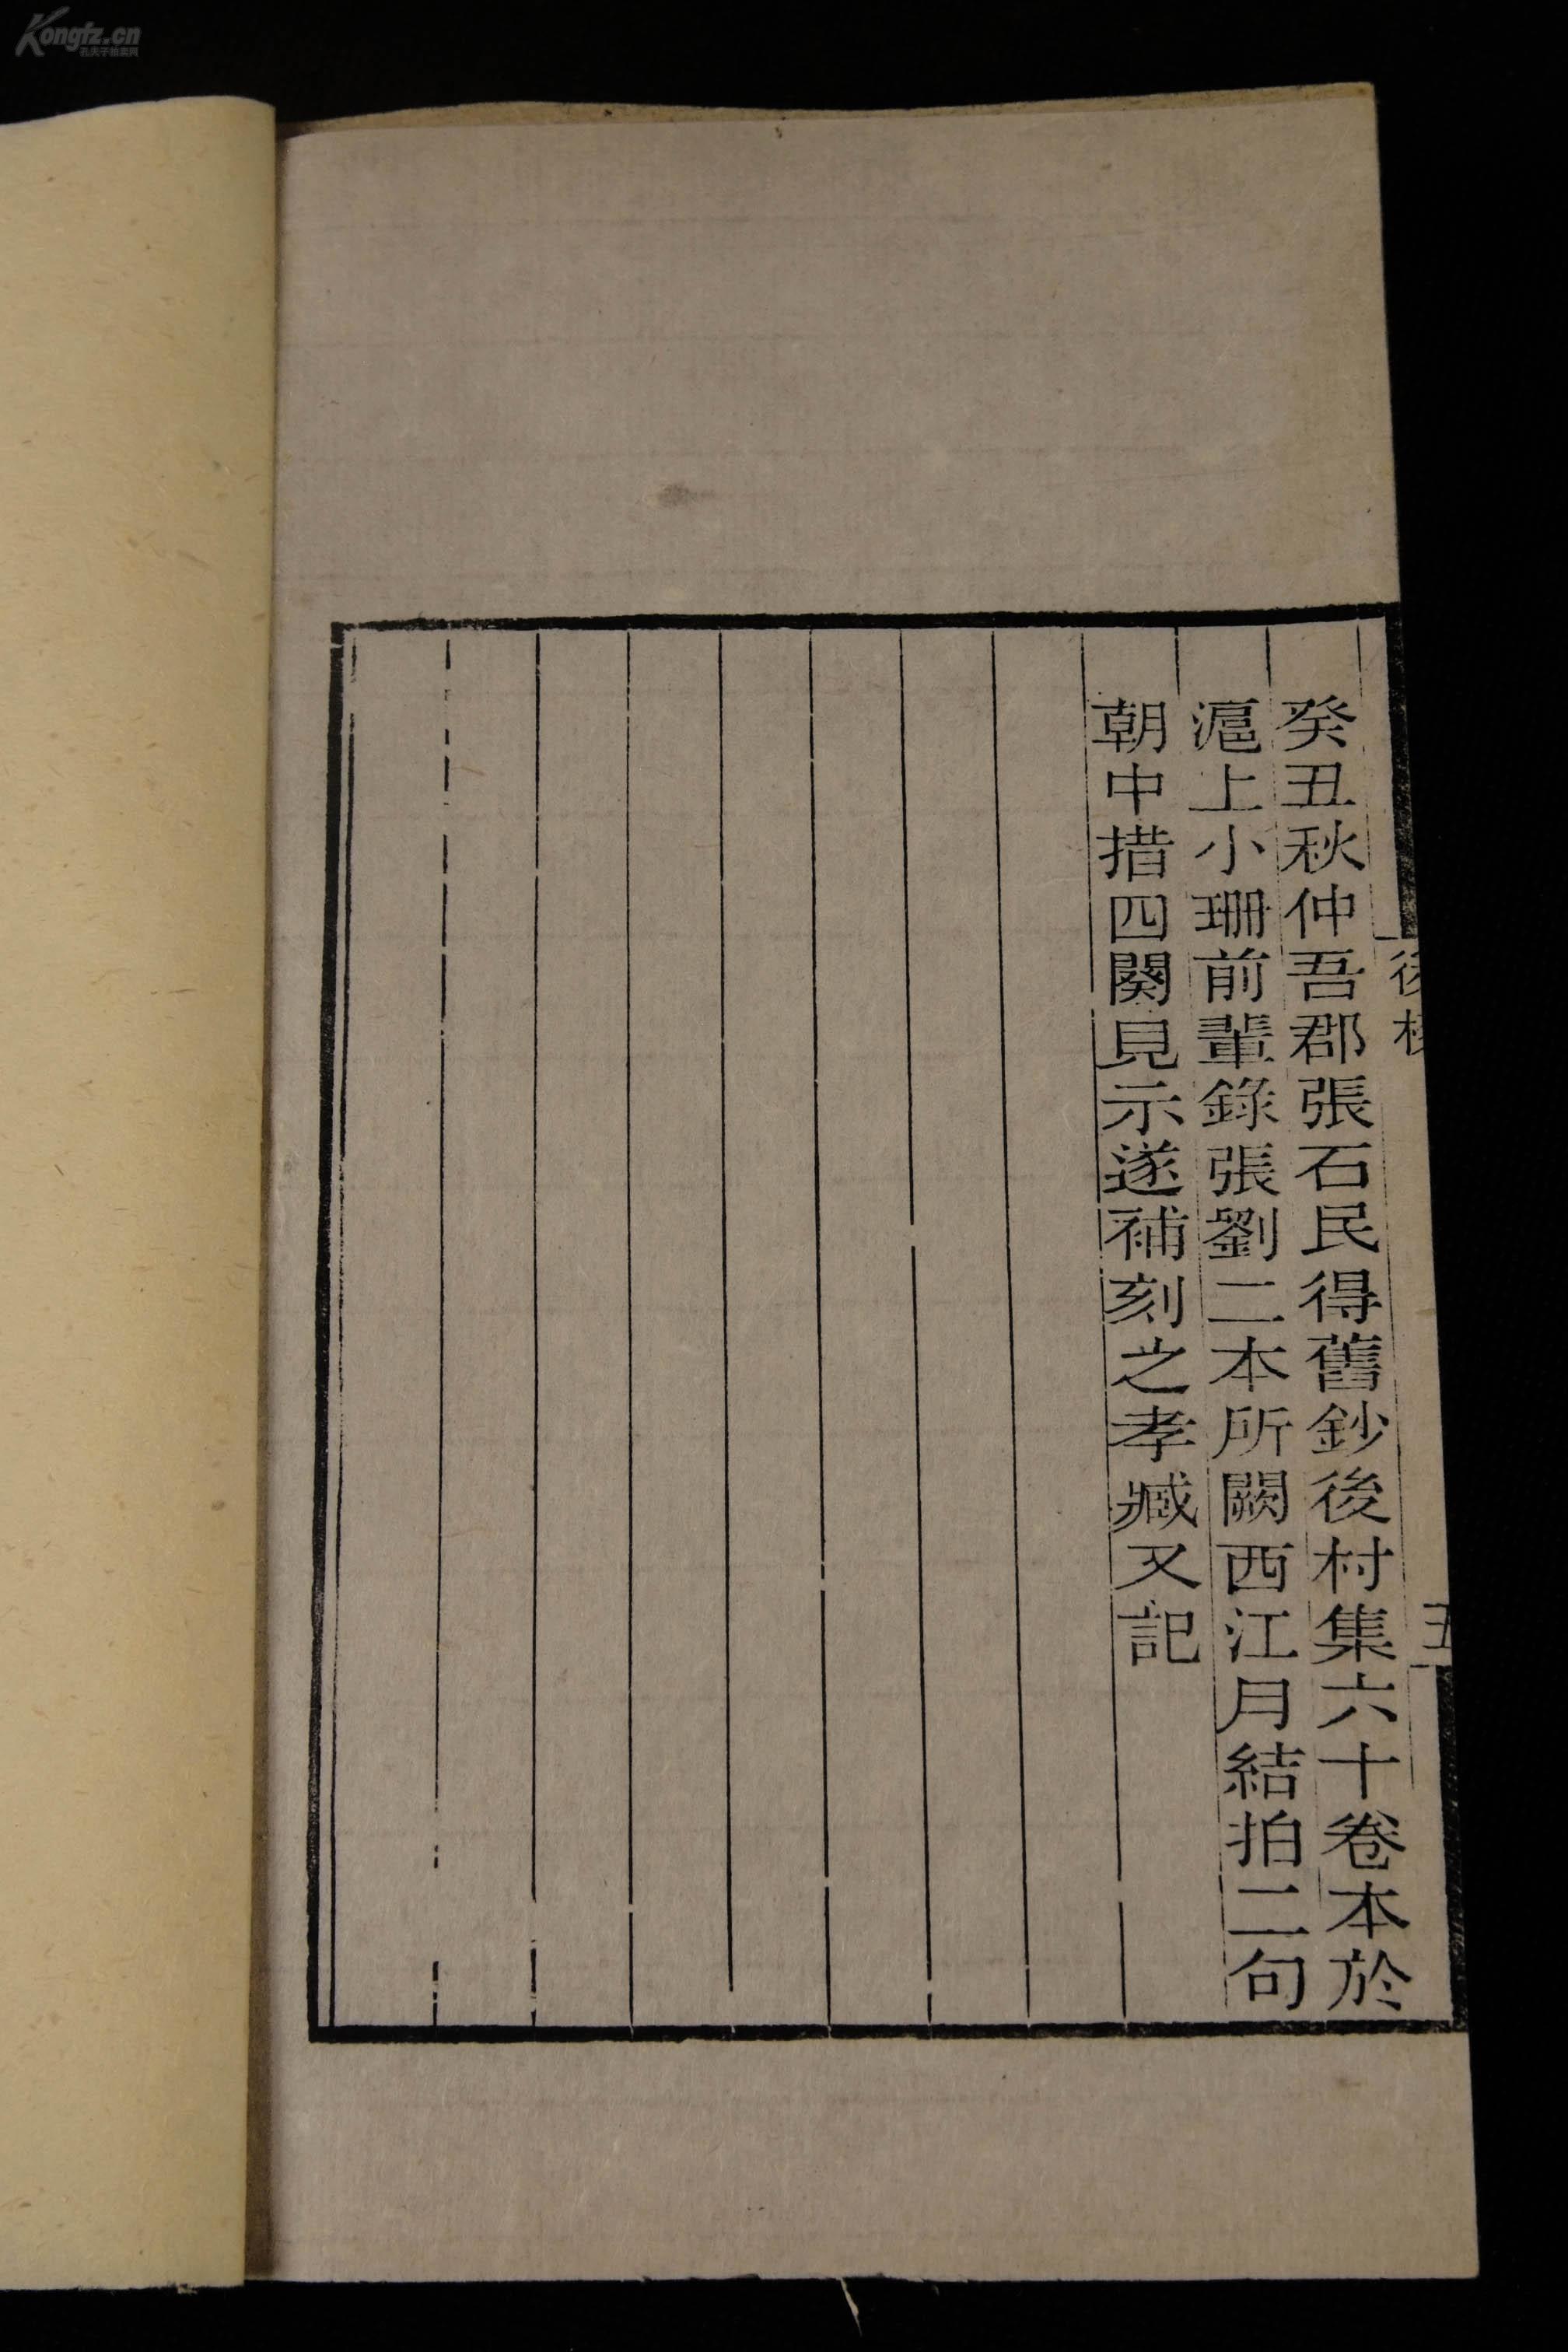 癸丑秋仲吾郡張石民得舊鈔後村集六十卷本於
滬上小珊前輩錄張劉二本所闕西江月結拍二句
朝中措四闋見示遂補刻之孝臧又記
後
五
Kongfz.cn
孔夫子拍卖网